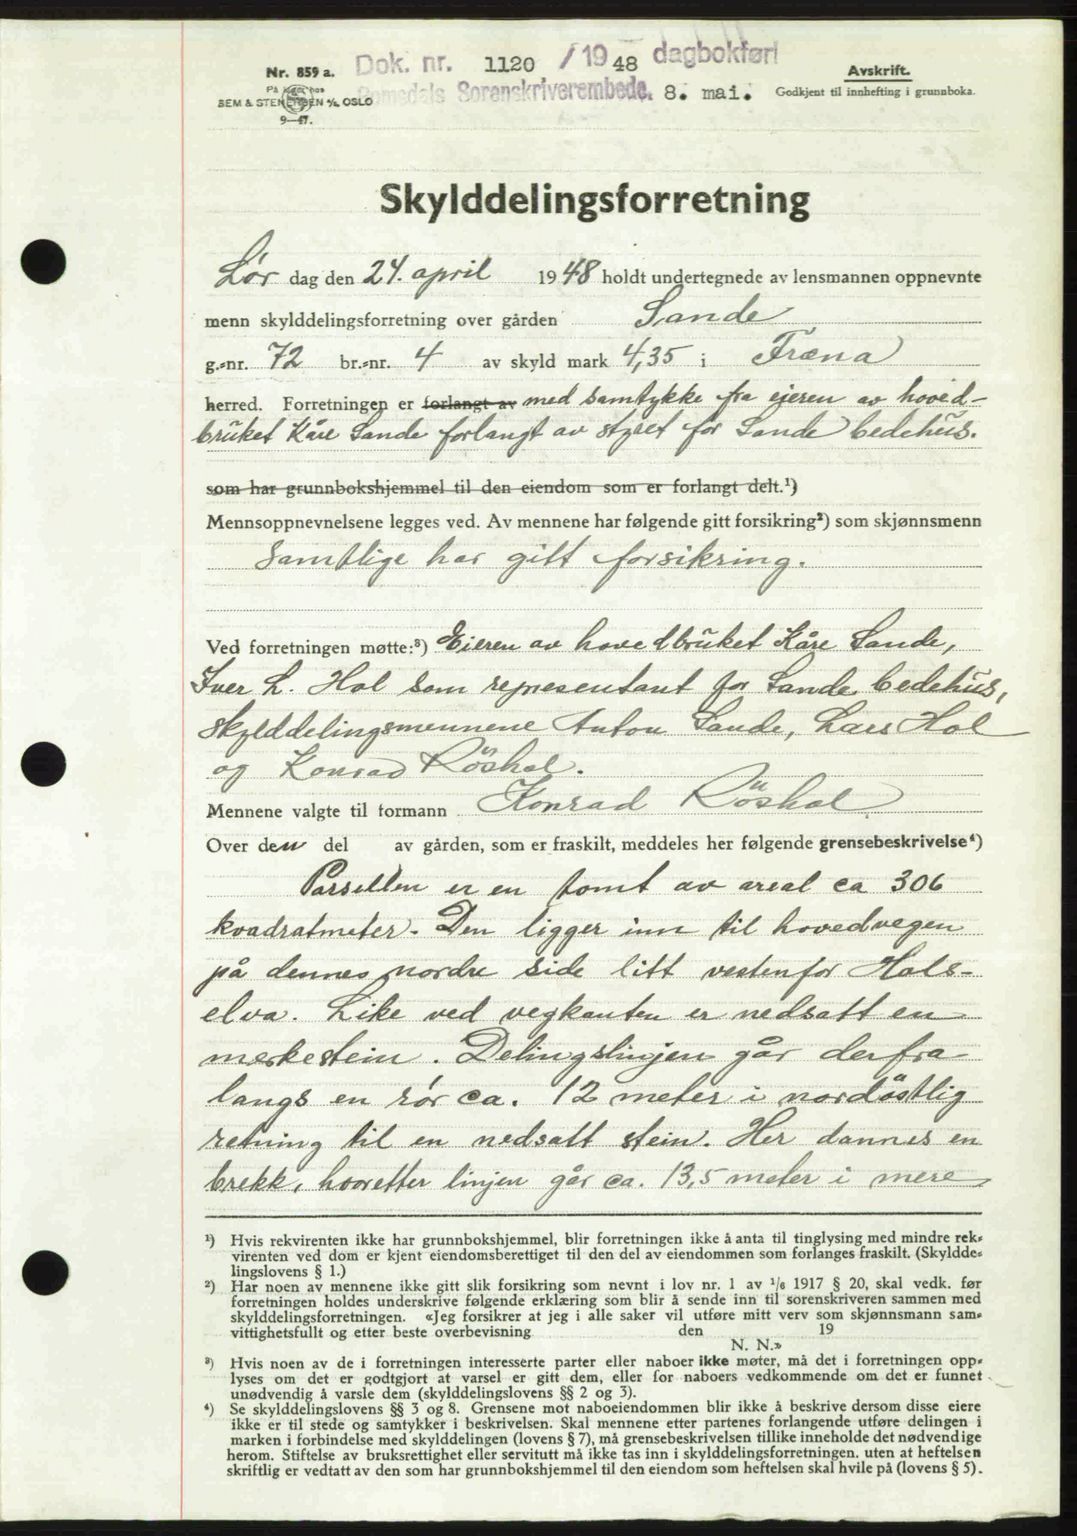 Dok. nr. 1120 / 19 48 dagbokført
Romsdals Sorenskriverembede. 8. mai.
Nr. 859 a.
På lager hos
SEM & STENERSEN A/S, OSLO
9—47.
Avskrift.
Godkjent til innhefting i grunnboka.
Skylddelingsforretning
Lør dag den 24. april 1948 holdt undertegnede av lensmannen oppnevnte
menn skylddelingsforretning over gården Sande
g.-nr. 72 br.-nr. 4 av skyld mark 4,35 i Fræna
herred. Forretningen er forlangt av med samtykke fra ejeren av hoved-
bruket Kåre Sande forlangt av styret for Sande bedehus.
som har grunnbokshjemmel til den eiendom som er forlangt delt.¹)
Mennsoppnevnelsene legges ved. Av mennene har følgende gitt forsikring²) som skjønnsmenn
Samtlige har gitt forsikring.
Ved forretningen møtte:³) Eieren av hovedbruket Kåre Sande,
Iver L. Hol som representant for Sande bedehus,
skylddelingsmennene Anton Sande, Lars Hol
og Konrad Röshol.
Mennene valgte til formann Konrad Röshol
Over den del av gården, som er fraskilt, meddeles her følgende grensebeskrivelse⁴)
Parsellen er en tomt av areal ca 306
kvadratmeter. Den ligger inn til hovedvegen
på dennes nordre side litt vestenfor Hols-
elva. Like ved vegkanten er nedsatt en
merkestein. Delingslinjen går derfra
langs en rör ca. 12 meter i nordöstlig
retning til en nedsatt stein. Her dannes en
brekk, hvoretter linjen går ca. 13,5 meter i mere
¹) Hvis rekvirenten ikke har grunnbokshjemmel, blir forretningen ikke å anta til tinglysing med mindre rek-
virenten ved dom er kjent eiendomsberettiget til den del av eiendommen som forlanges fraskilt. (Skyldde-
lingslovens § 1.)
²) Har noen av mennene ikke gitt slik forsikring som nevnt i lov nr. 1 av ¹/₆ 1917 § 20, skal vedk. før
forretningen holdes underskrive følgende erklæring som blir å sende inn til sorenskriveren sammen med
skylddelingsforretningen. «Jeg forsikrer at jeg i alle saker vil utføre mitt verv som skjønnsmann sam-
vittighetsfullt og etter beste overbevisning den 19
N. N.»
³) Hvis noen av de i forretningen interesserte parter eller naboer ikke møter, må det i forretningen opp-
lyses om det er godtgjort at varsel er gitt dem, eller for naboers vedkommende om det er funnet
unødvendig å varsle dem (skylddelingslovens §§ 2 og 3).
⁴) Se skylddelingslovens §§ 3 og 8. Grensene mot naboeiendommen blir ikke å beskrive dersom disse eiere
ikke er til stede og samtykker i beskrivelsen. Skal mennene etter partenes forlangende utføre delingen i
marken i forbindelse med skylddelingen (lovens § 7), må grensebeskrivelsen tillike inneholde det nødvendige
herom. Stiftelse av bruksrettighet eller servitutt må ikke tas inn i skylddelingsforretningen, uten at heftelsen
skriftlig er vedtatt av den som har grunnbokshjemmel til den eiendom som heftelsen skal hvile på (lovens § 5).